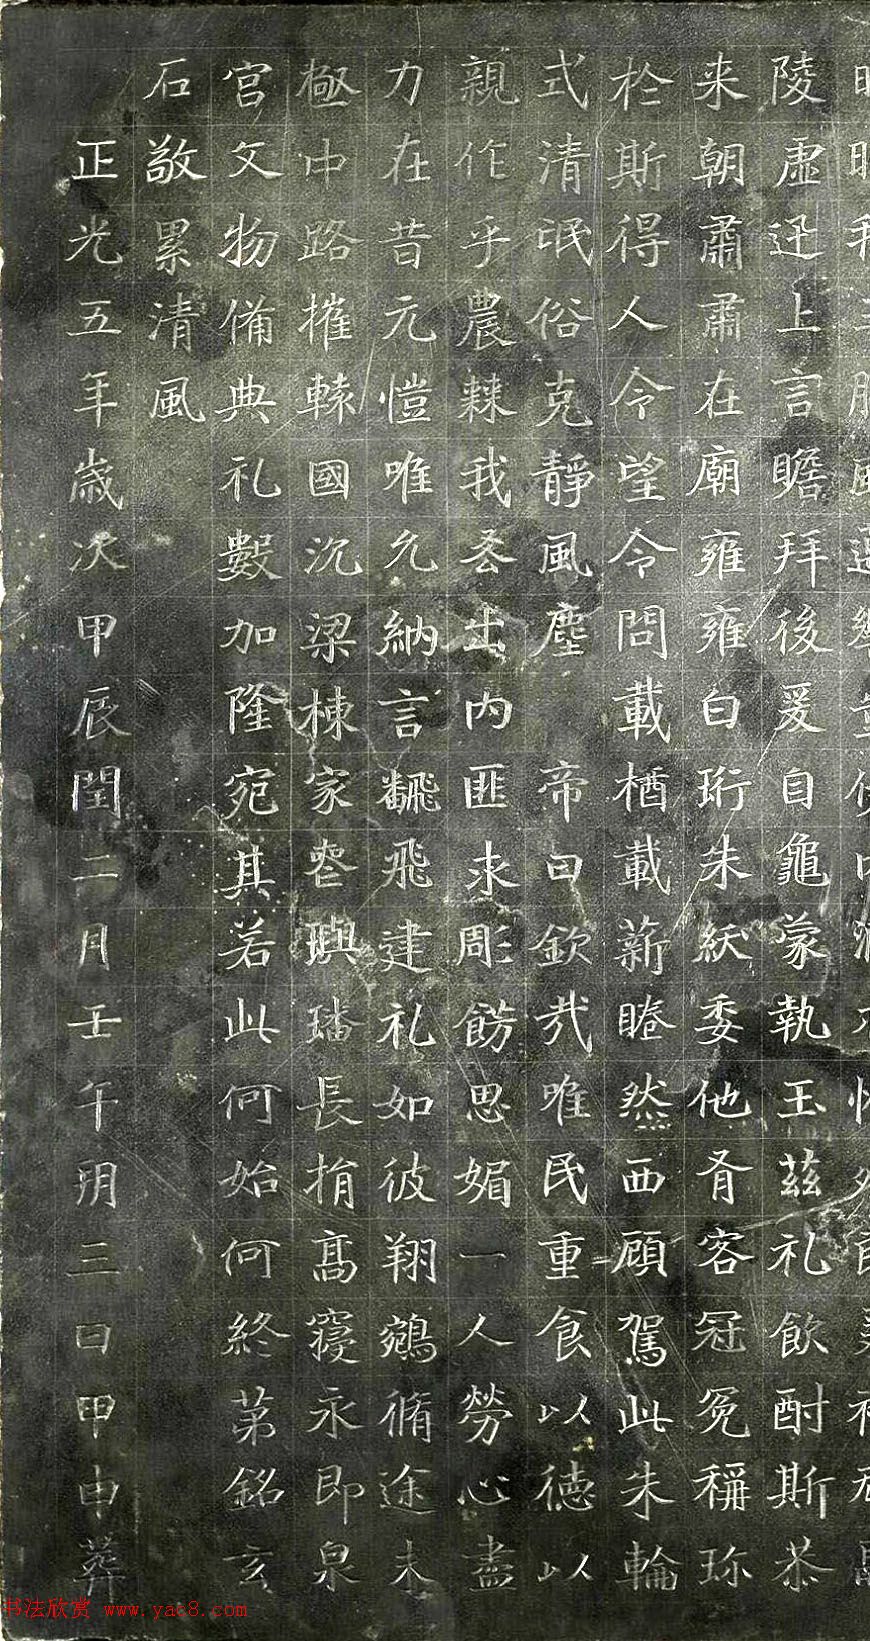 陵虛迅上言瞻拜後爰自龜蒙執玉茲礼飲酎斯恭
来朝肅肅在廟雍雍白珩朱紱委他胥容冠冕稱珎
於斯得人令望令問載槱載薪睠然西顧駕此朱輪
式清氓俗克靜風塵 帝曰欽哉唯民重食以德以
親作乎農棘我出内匪求彫餝思媚一人勞心盡
力在昔元愷唯允納言翻飛建礼如彼翔鵷脩途未
極中路摧轅國沉梁棟家喪璵璠長捐高寑永即泉
宮文物備典礼數加隆宛其若此何始何終苐銘玄
石敬累清風
正光五年歲次甲辰閏二月壬午朔三日甲申葬
书法欣赏 www.yac8.com